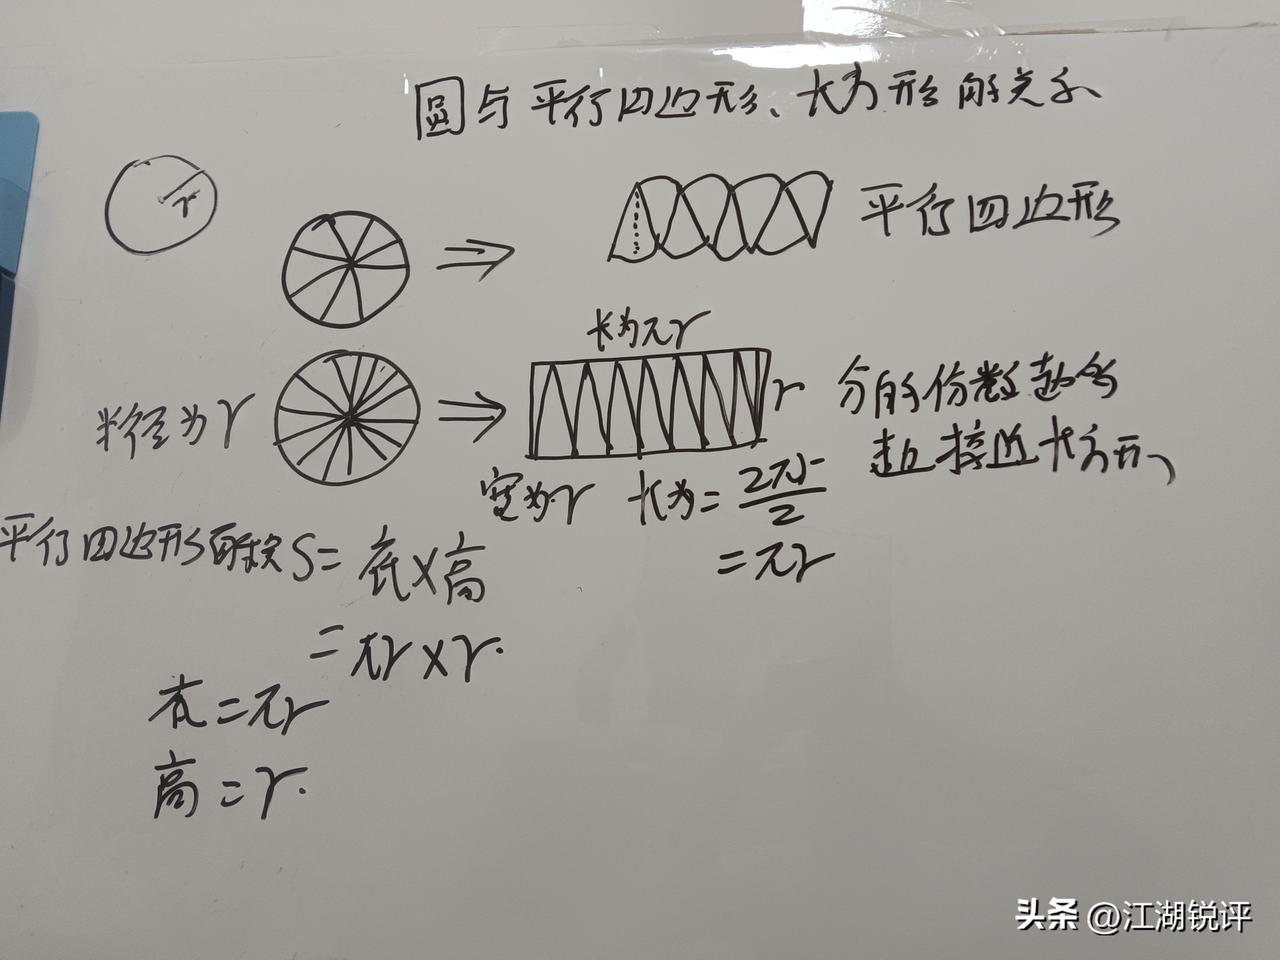 圆与平行四边形、长方形的关系
r
平行四边形
长为πr
半径为r
r
分的份数越多
越接近长方形、
宽为r 长为=2πr/2
=πr
平行四边形面积S=底×高
=πr×r.
底=πr
高=r.
头条 @江湖锐评